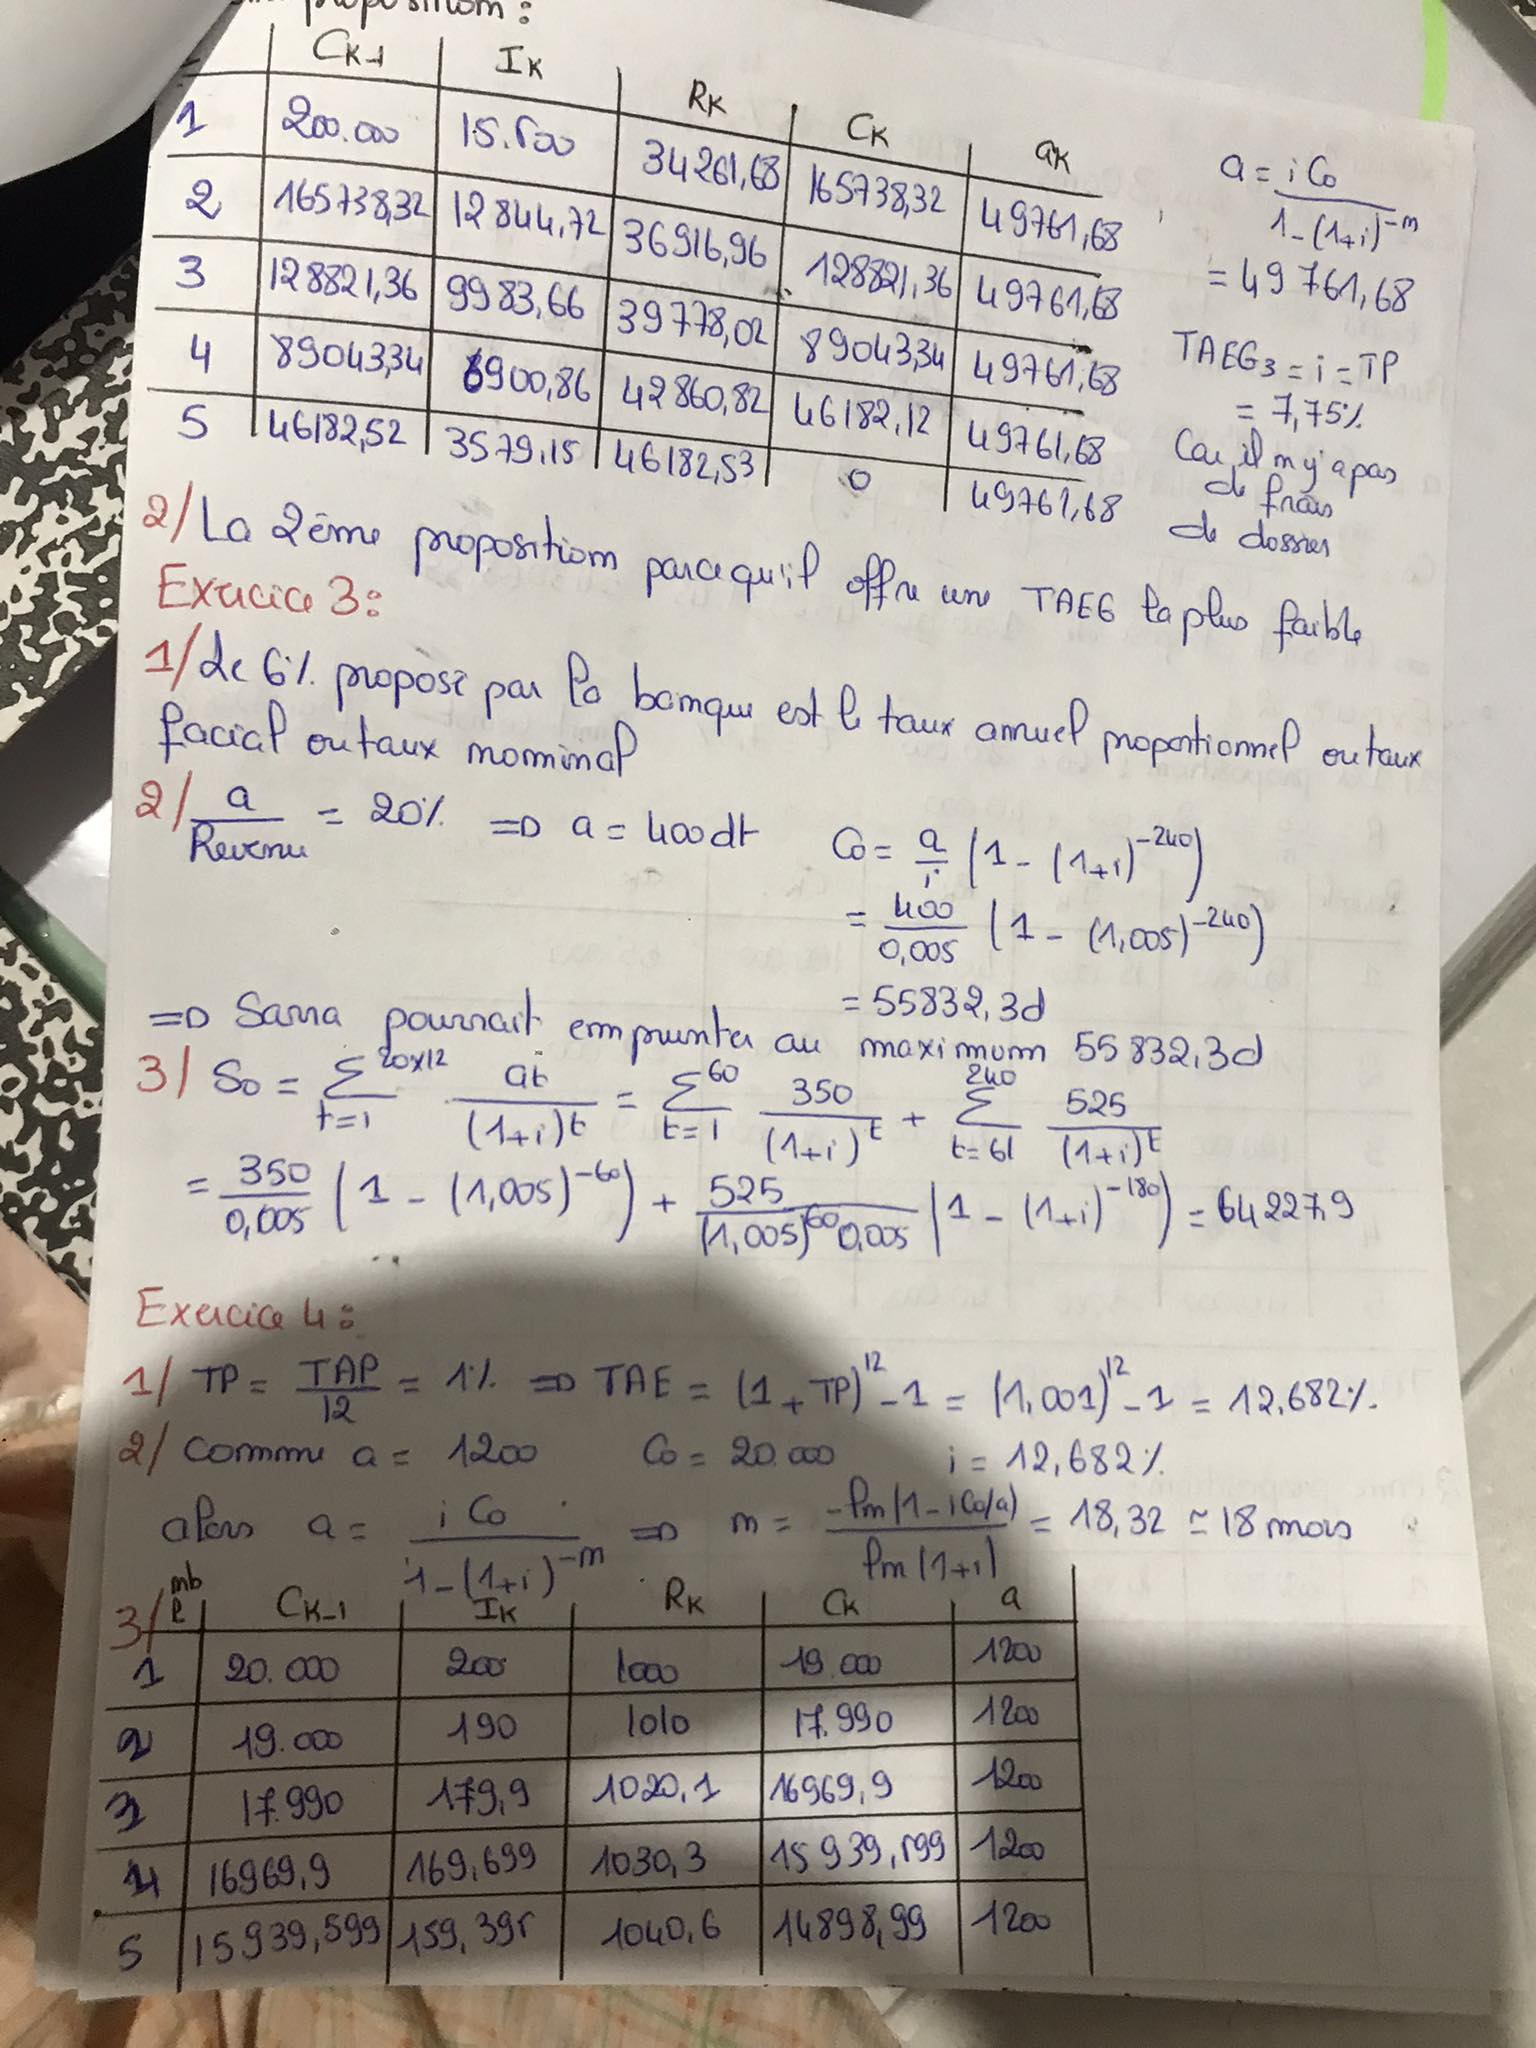 proposition :
CK-1 IK RK CK aK
1 200.000 15.500 34261,68 165738,32 49761,68
2 165738,32 12844,72 36916,96 128821,36 49761,68
3 128821,36 9983,66 39778,02 89043,34 49761,68
4 89043,34 6900,86 42860,82 46182,12 49761,68
5 46182,52 3579,15 46182,53 0 49761,68
a = iC0 / 1-(1+i)^-n
= 49 761,68
TAEG3 = i = TP
= 7,75%
Car il n'y a pas
de frais
de dossier
2/ La 2ème proposition parcequ'il offre une TAEG la plus faible
Exercice 3 :
1/ Le 6% proposé par la banque est le taux annuel proportionnel ou taux
facial ou taux nominal
2/ a / Revenu = 20% => a = 400dt C0 = a/i (1 - (1+i)^-240)
= 400/0,005 (1 - (1,005)^-240)
= 55832,3d
=> Sarra pourrait emprunter au maximum 55832,3d
3/ S0 = Σ t=1 20x12 at/(1+i)^t = Σ t=1 60 350/(1+i)^t + Σ t=61 240 525/(1+i)^t
= 350/0,005 (1 - (1,005)^-60) + 525/(1,005)^60 0,005 (1 - (1+i)^-180) = 64227,9
Exercice 4 :
1/ TP = TAP/12 = 1% => TAE = (1+TP)^12 - 1 = (1,001)^12 - 1 = 12,682%
2/ Comme a = 1200 C0 = 20.000 i = 12,682%
alors a = iC0 / 1-(1+i)^-n => n = -ln(1-iC0/a) / ln(1+i) = 18,32 ≃ 18 mois
3/ nb P CK-1 IK RK CK a
1 20.000 200 1000 19.000 1200
2 19.000 190 1010 17.990 1200
3 17.990 179,9 1020,1 16969,9 1200
4 16969,9 169,699 1030,3 15939,599 1200
5 15939,599 159,395 1040,6 14898,99 1200